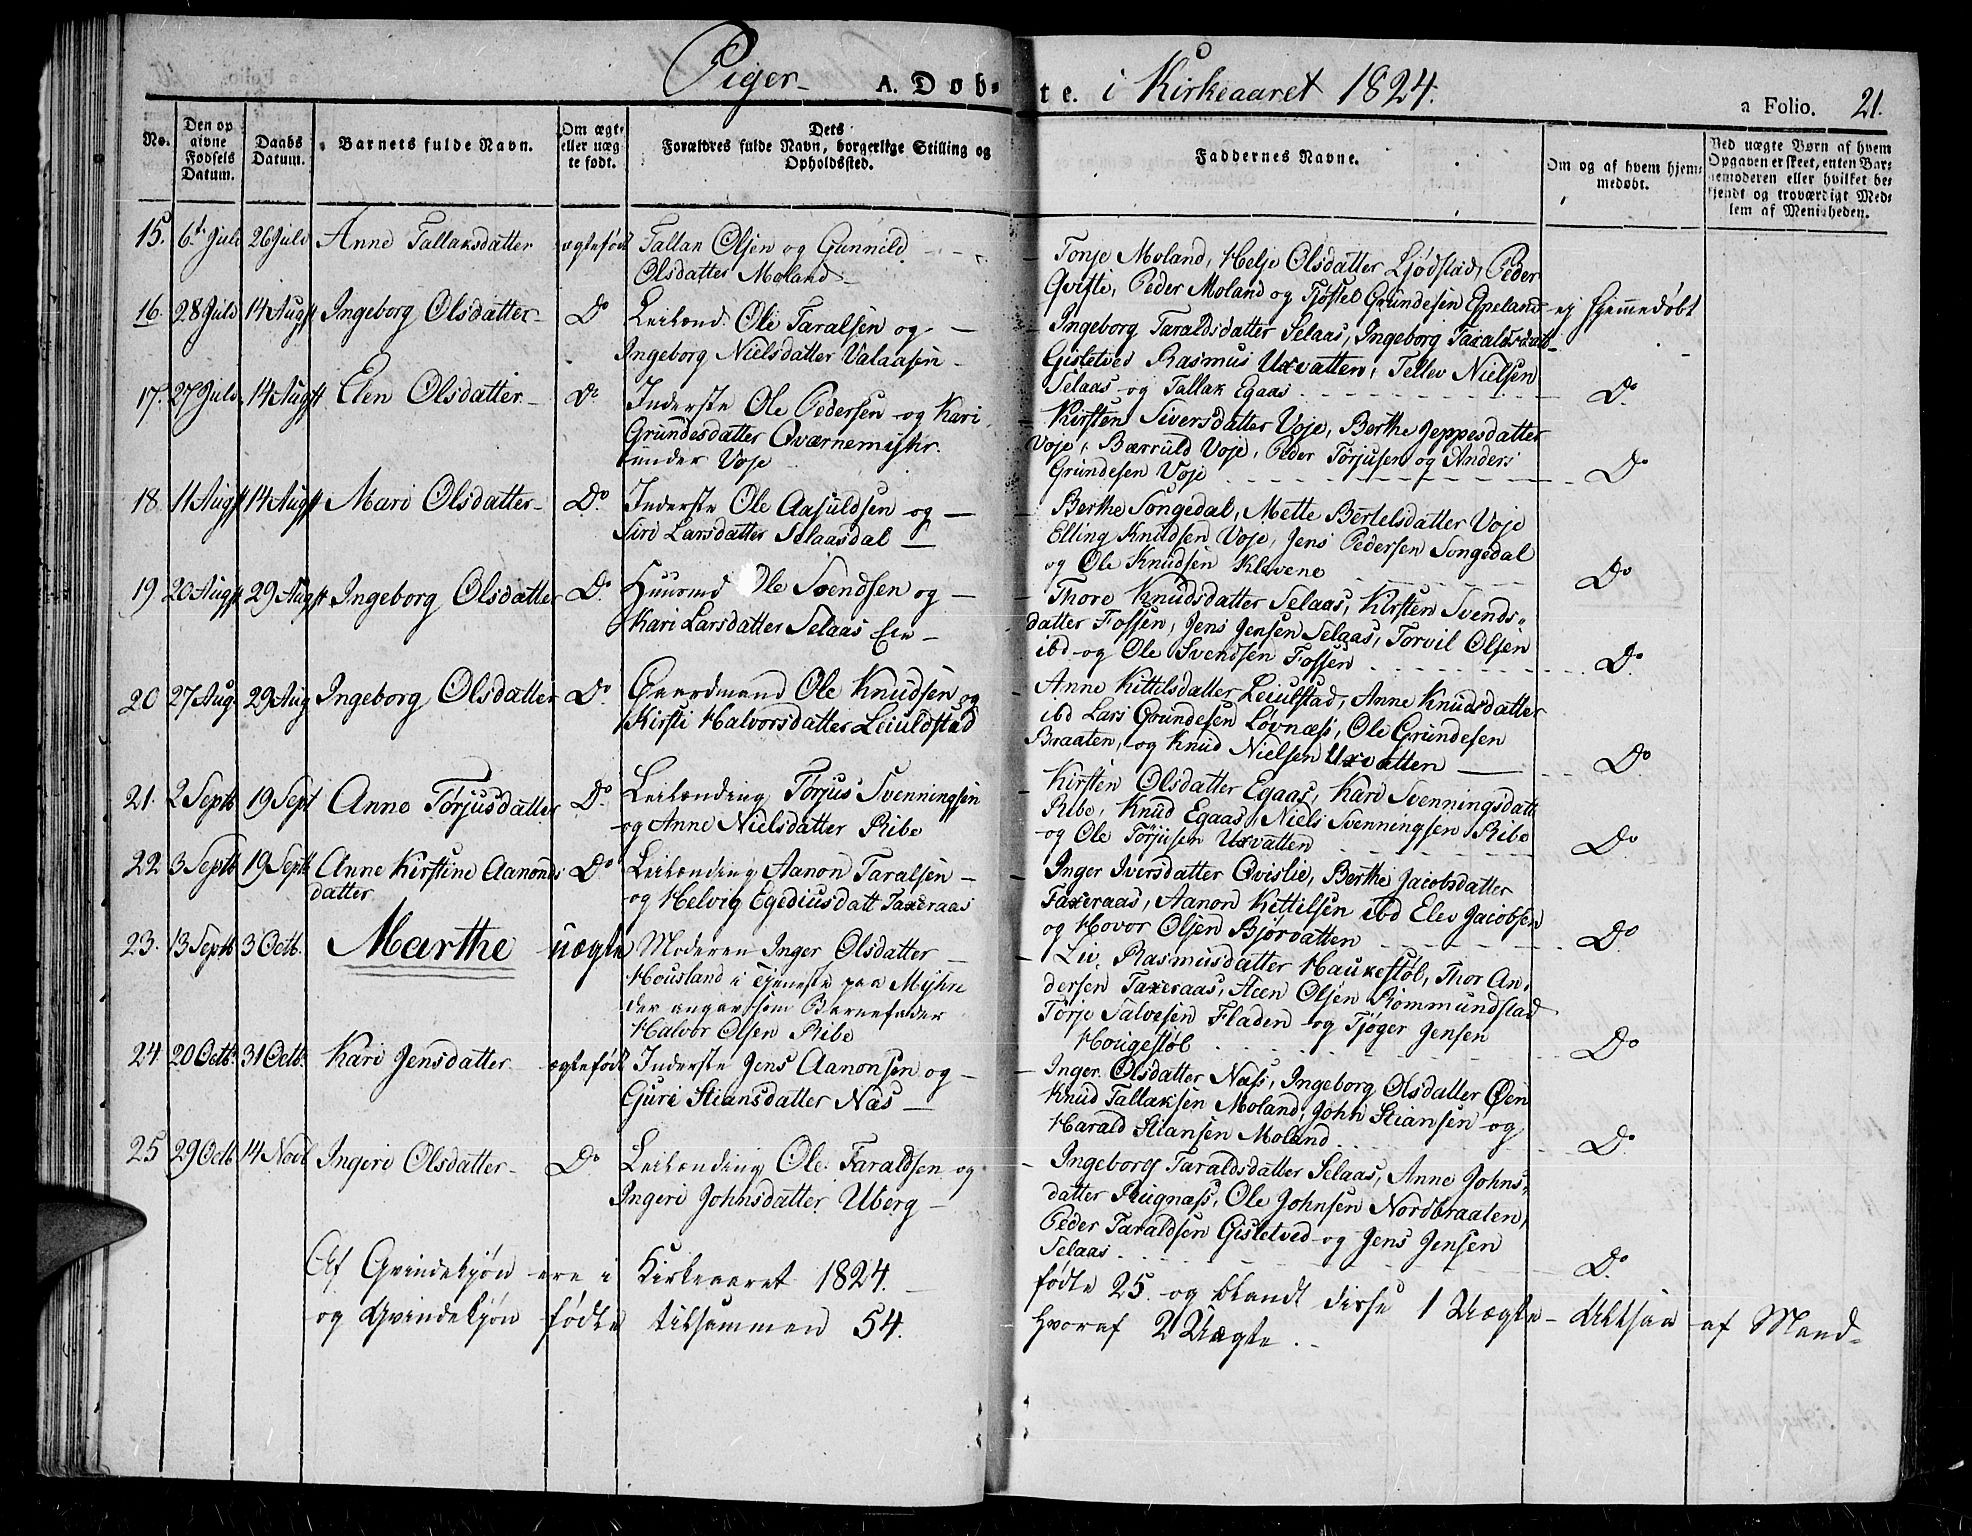 Piger A. Døb- te. i Kirkeaaret 1824.
a Folio. 21.
No.
Den opgivne Fødsels Datum.
Daabs Datum.
Barnets fulde Navn.
Om ægte eller uægte født.
Dets Forældres fulde Navn, borgerlige Stilling og Opholdssted.
Faddernes Navne.
Om og af hvem hjemmedøbt.
Ved uægte Børn af hvem Opgaven er skeet, enten Barnemoderen eller hvilket bekjendt og troværdigt Medlem af Menigheden.
15. 6t Juli 26 Juli Anne Tallaksdatter ægtefødt Tallak Olsen og Gunnild
Olsdatter Moland
Tonje Moland, Helje Olsdatter Ljødstad, Peder
Qvisti, Peder Moland og Tjøstel Grundesen Egeland ej hjemmedøbt
16. 28 Juli 14 Augst Ingeborg Olsdatter Do Leilænd. Ole Taralsen og
Ingeborg Nielsdatter Valaasen
Ingeborg Taraldsdatter Selaas, Ingeborg Taraldsdatt
Gisletved Rasmus Uxvatten, Tellev Nielsen
Selaas og Tallak Egaas Do
17. 27 Juli 14 Augst Elen Olsdatter Do Inderste Ole Pedersen og Kari
Grundesdatter Qværnemistr.
under Voje
Kirsten Siversdatter Voje, Berthe Jeppesdatter
Voje, Bærruld Voje, Peder Tørjusen og Anders
Grundesen Voje Do
18 11 Augst 14 Augst Mari Olsdatter Do Inderste Ole Aasuldsen og
Siri Larsdatter Selaasdal
Berthe Songedal, Mette Bertelsdatter Voje
Elling Knudsen Voje, Jens Pedersen Songedal
og Ole Knudsen Klevene Do
19 20 Augst 29 Augst Ingeborg Olsdatter Do Huusmd Ole Svendsen og
Kari Larsdatter Selaas Eie
Thore Knudsdatter Selaas, Kirsten Svends-
datter Fossen, Jens Jensen Selaas, Torvil Olsen
ibd og Ole Svendsen Fossen Do
20 27 Aug. 29 Aug Ingeborg Olsdatter Do Gaardmand Ole Knudsen og
Kirsti Halvorsdatter Leiuldstad
Anne Kittilsdatter Leiulstad, Anne Knudsdatter
ibd Lars Grundesen Løvnæss, Ole Grundesen
Braaten, og Knud Nielsen Uxvatten Do
21. 2 Septb 19 Sept Anne Tørjusdatter Do Leilænding Tørjus Svenningsen
og Anne Nielsdatter Ribe
Kirsten Olsdatter Egaas, Kari Svenningsdatt
Ribe, Knud Egaas, Niels Svenningsen Ribe
og Ole Tørjusen Uxvatten Do
22 3 Septb 19 Septb Anne Kirstine Aanonds
datter Do Leilænding Aanon Taralsen
og Helvig Egediusdatt Taxeraas
Inger Iversdatter Qvislie, Berthe Jacobsdatter
Taxeraas, Aanon Kittilsen ibd Elev Jacobsen
og Hovor Olsen Bjørvatten Do
23. 13 Septb 3 Octb. Marthe uægte Moderen Inger Olsdatter
Housland i Tjeneste paa Myhre
der angav som Barnefader
Halvor Olsen Ribe
Liv. Rasmusdatter Haukestøl, Thor An-
dersen Taxeraas, Aeen Olsen Rommundstad
Tørje Salvesen Fladen og Tjøger Jensen
Hougestøl Do
24. 20 Octb. 31 Octb. Kari Jensdatter ægtefødt Inderste Jens Aanonsen og
Guri Stiansdatter Næs
Inger Olsdatter Næss, Ingeborg Olsdatter Øen
Knud Tallaksen Moland, John Stiansen og
Harald Stiansen Moland Do
25 29 Octb 14 Novb Ingeri Olsdatter Do Leilænding Ole Taraldsen og
Ingeri Johnsdatter Uberg
Ingeborg Taraldsdatter Selaas, Anne Johns-
datter Rugnæss, Ole Johnsen Nordbraaten,
Peder Taraldsen Gisletved og Jens Jensen
Selaas Do
Af Qvindekjøn ere i Kirkeaaret 1824. fødte 25. og blandt disse 1 Uægte - Altsaa af Mand-
og Qvindekjøn fødte tilsammen 54. hvoraf 2 Uægte.